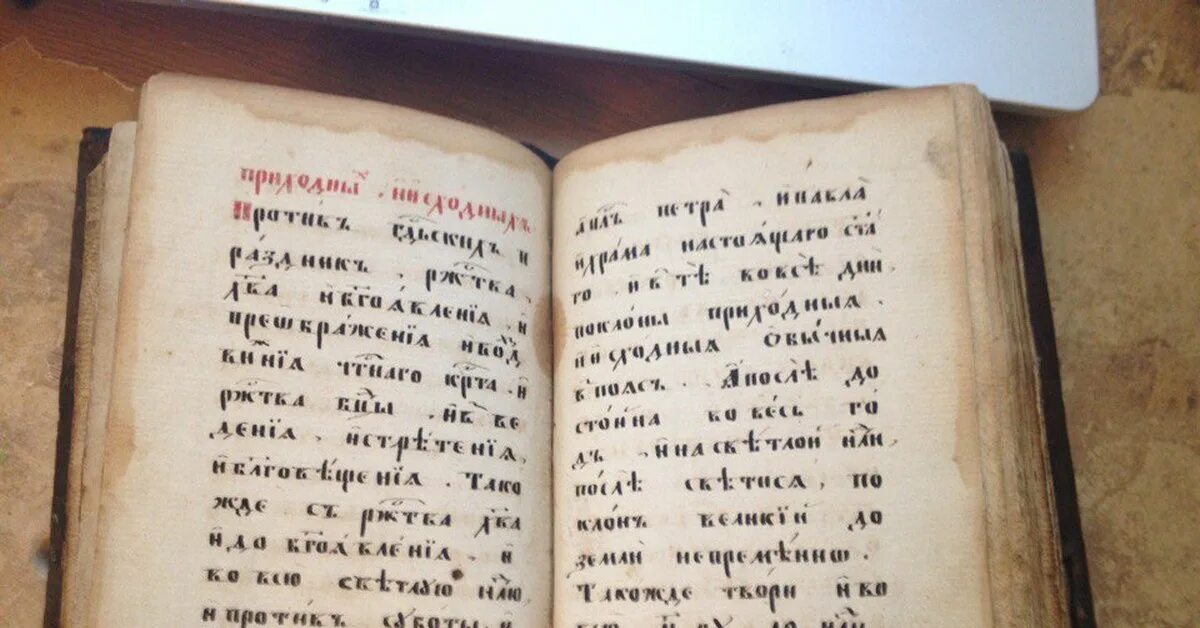 приходны́хъ . и҆исходныхъ
Противъ гд҇ьскихъ п
ра́здникъ . рж҇тва .
хв҃а и҆бг҃оѧвле́нїѧ . и҆
преѡбраже́нїѧ и҆возд
виженїѧ чтⷭ҇наго крⷭ҇та . и҆
рж҇тва бцⷣы . и҆в̾ве
де́нїѧ . и҆стрѣ́тенїѧ ,
и҆бл҃говѣ́щенїѧ . Тако
жде съ рж҇тва хв҃а
и҆до бг҃оѧвле́нїѧ . и҆
во всю свѣтлую нлⷣю ,
и҆против̾ суботы . и҆
апⷭ҇лъ петра̀ . и҆па́вла
и҆храма настоѧщаго ст҃а
го . и҆в̾тѣ̀ во всѣ̀ дни ,
поклоны прихо́дныѧ .
и҆исхо́дныѧ ѻбы́чныѧ
в̾поѧсъ . А҆послѣ̀ до
сто́йна во ве́сь го
дъ , и҆на свѣ́тлой нлⷣи ,
по́слѣ свѣтисѧ , по
кло́нъ вели́кїй до
землѝ непремѣ́ннѡ .
Та́кожде творѝ и҆во
всю̀ до нлⷣи